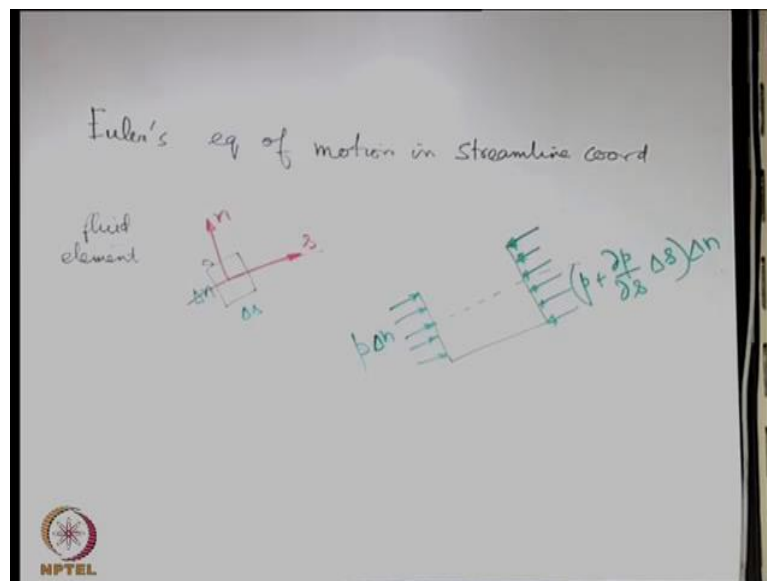 Euler's eq of motion in streamline coord
fluid
element
n
s
Δn
Δs
pΔn
(p + ∂p/∂s Δs)Δn
NPTEL